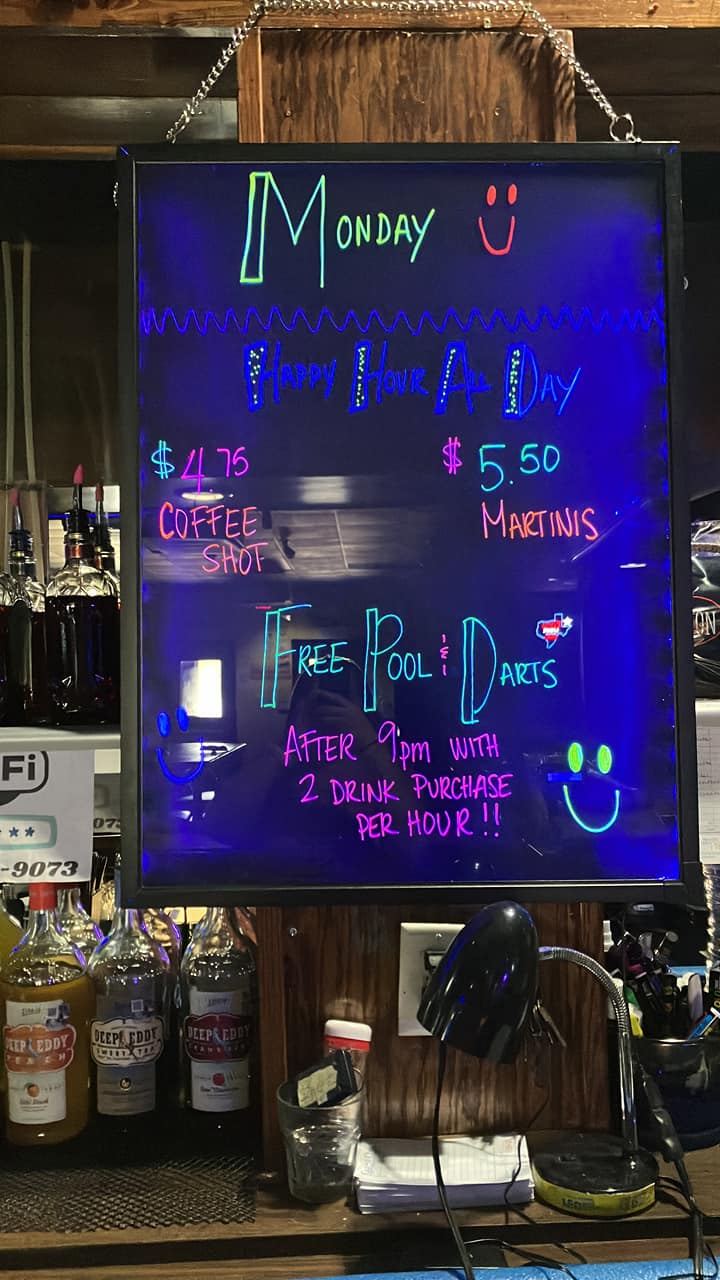 MONDAY
HAPPY HOUR ALL DAY
$4.75
COFFEE
SHOT
$5.50
MARTINIS
FREE POOL & DARTS
AFTER 9pm WITH
2 DRINK PURCHASE
PER HOUR!!
Fi)
***
-9073
DEEP EDDY
PEACH
DEEP EDDY
SWEET TEA
DEEP EDDY